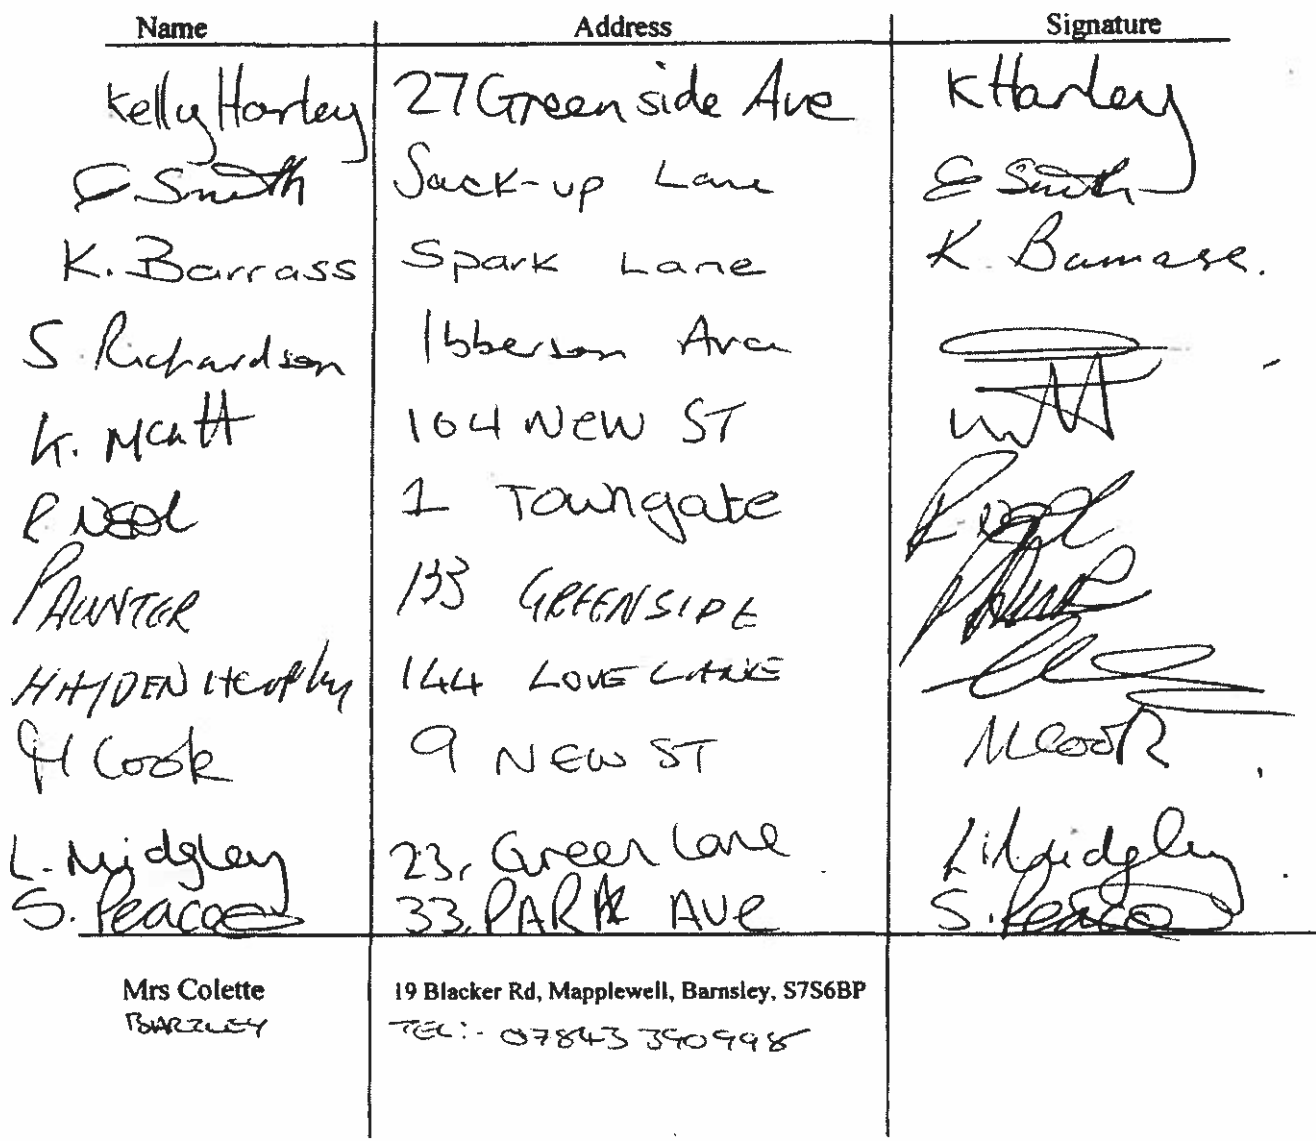 Name Address Signature
Kelly Harley 27 Greenside Ave K Harley
E Smith Jack-up Lane E Smith
K. Barrass Spark Lane K.
S Richardson Ibberson Ave
K. 104 NEW ST
1 Towngate
133 GREENSIDE
HAYDEN 144 LOVE LANE
M Cook 9 NEW ST M Cook
L. Midgley 23, Green Lane L. Midgley
S. Peacock 33, PARK AVE S. Peacock
Mrs Colette 19 Blacker Rd, Mapplewell, Barnsley, S7S6BP
TEL:- 07843 390998